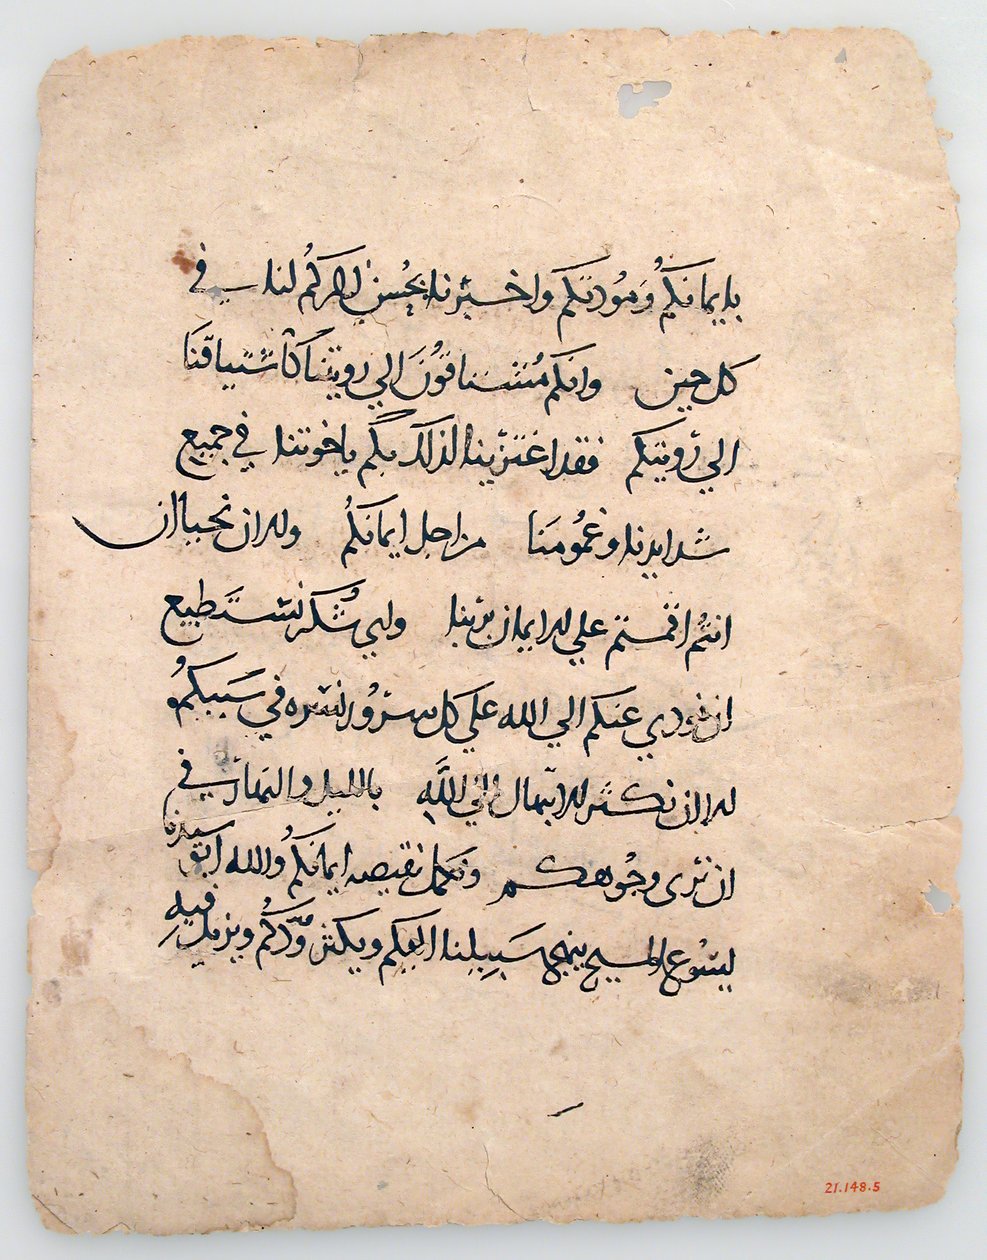 بايمانكم ومودتكم واخبرنا بحسن ذكركم لنا في
كل حين وانكم مشتاقون الي رويتنا كاشتياقنا
الي رويتكم فقد اعتزينا لذلك بكم ياخوتنا في جميع
شدايدنا وغمومنا من اجل ايمانكم والان نحيا ان
انتم اقمتم علي الايمان بربنا واي شكر نستطيع
ان نودي عنكم الي الله علي كل سرور نسره في سببكم
الا ان نكثر الابتهال الي الله بالليل والنهار في
ان نري وجوهكم ونكمل نقيصه ايمانكم والله ابونا
سيدنا
يسوع المسيح ينهج سبيلنا اليكم ويكثر ودكم ويزيد
فيه
21.148.5